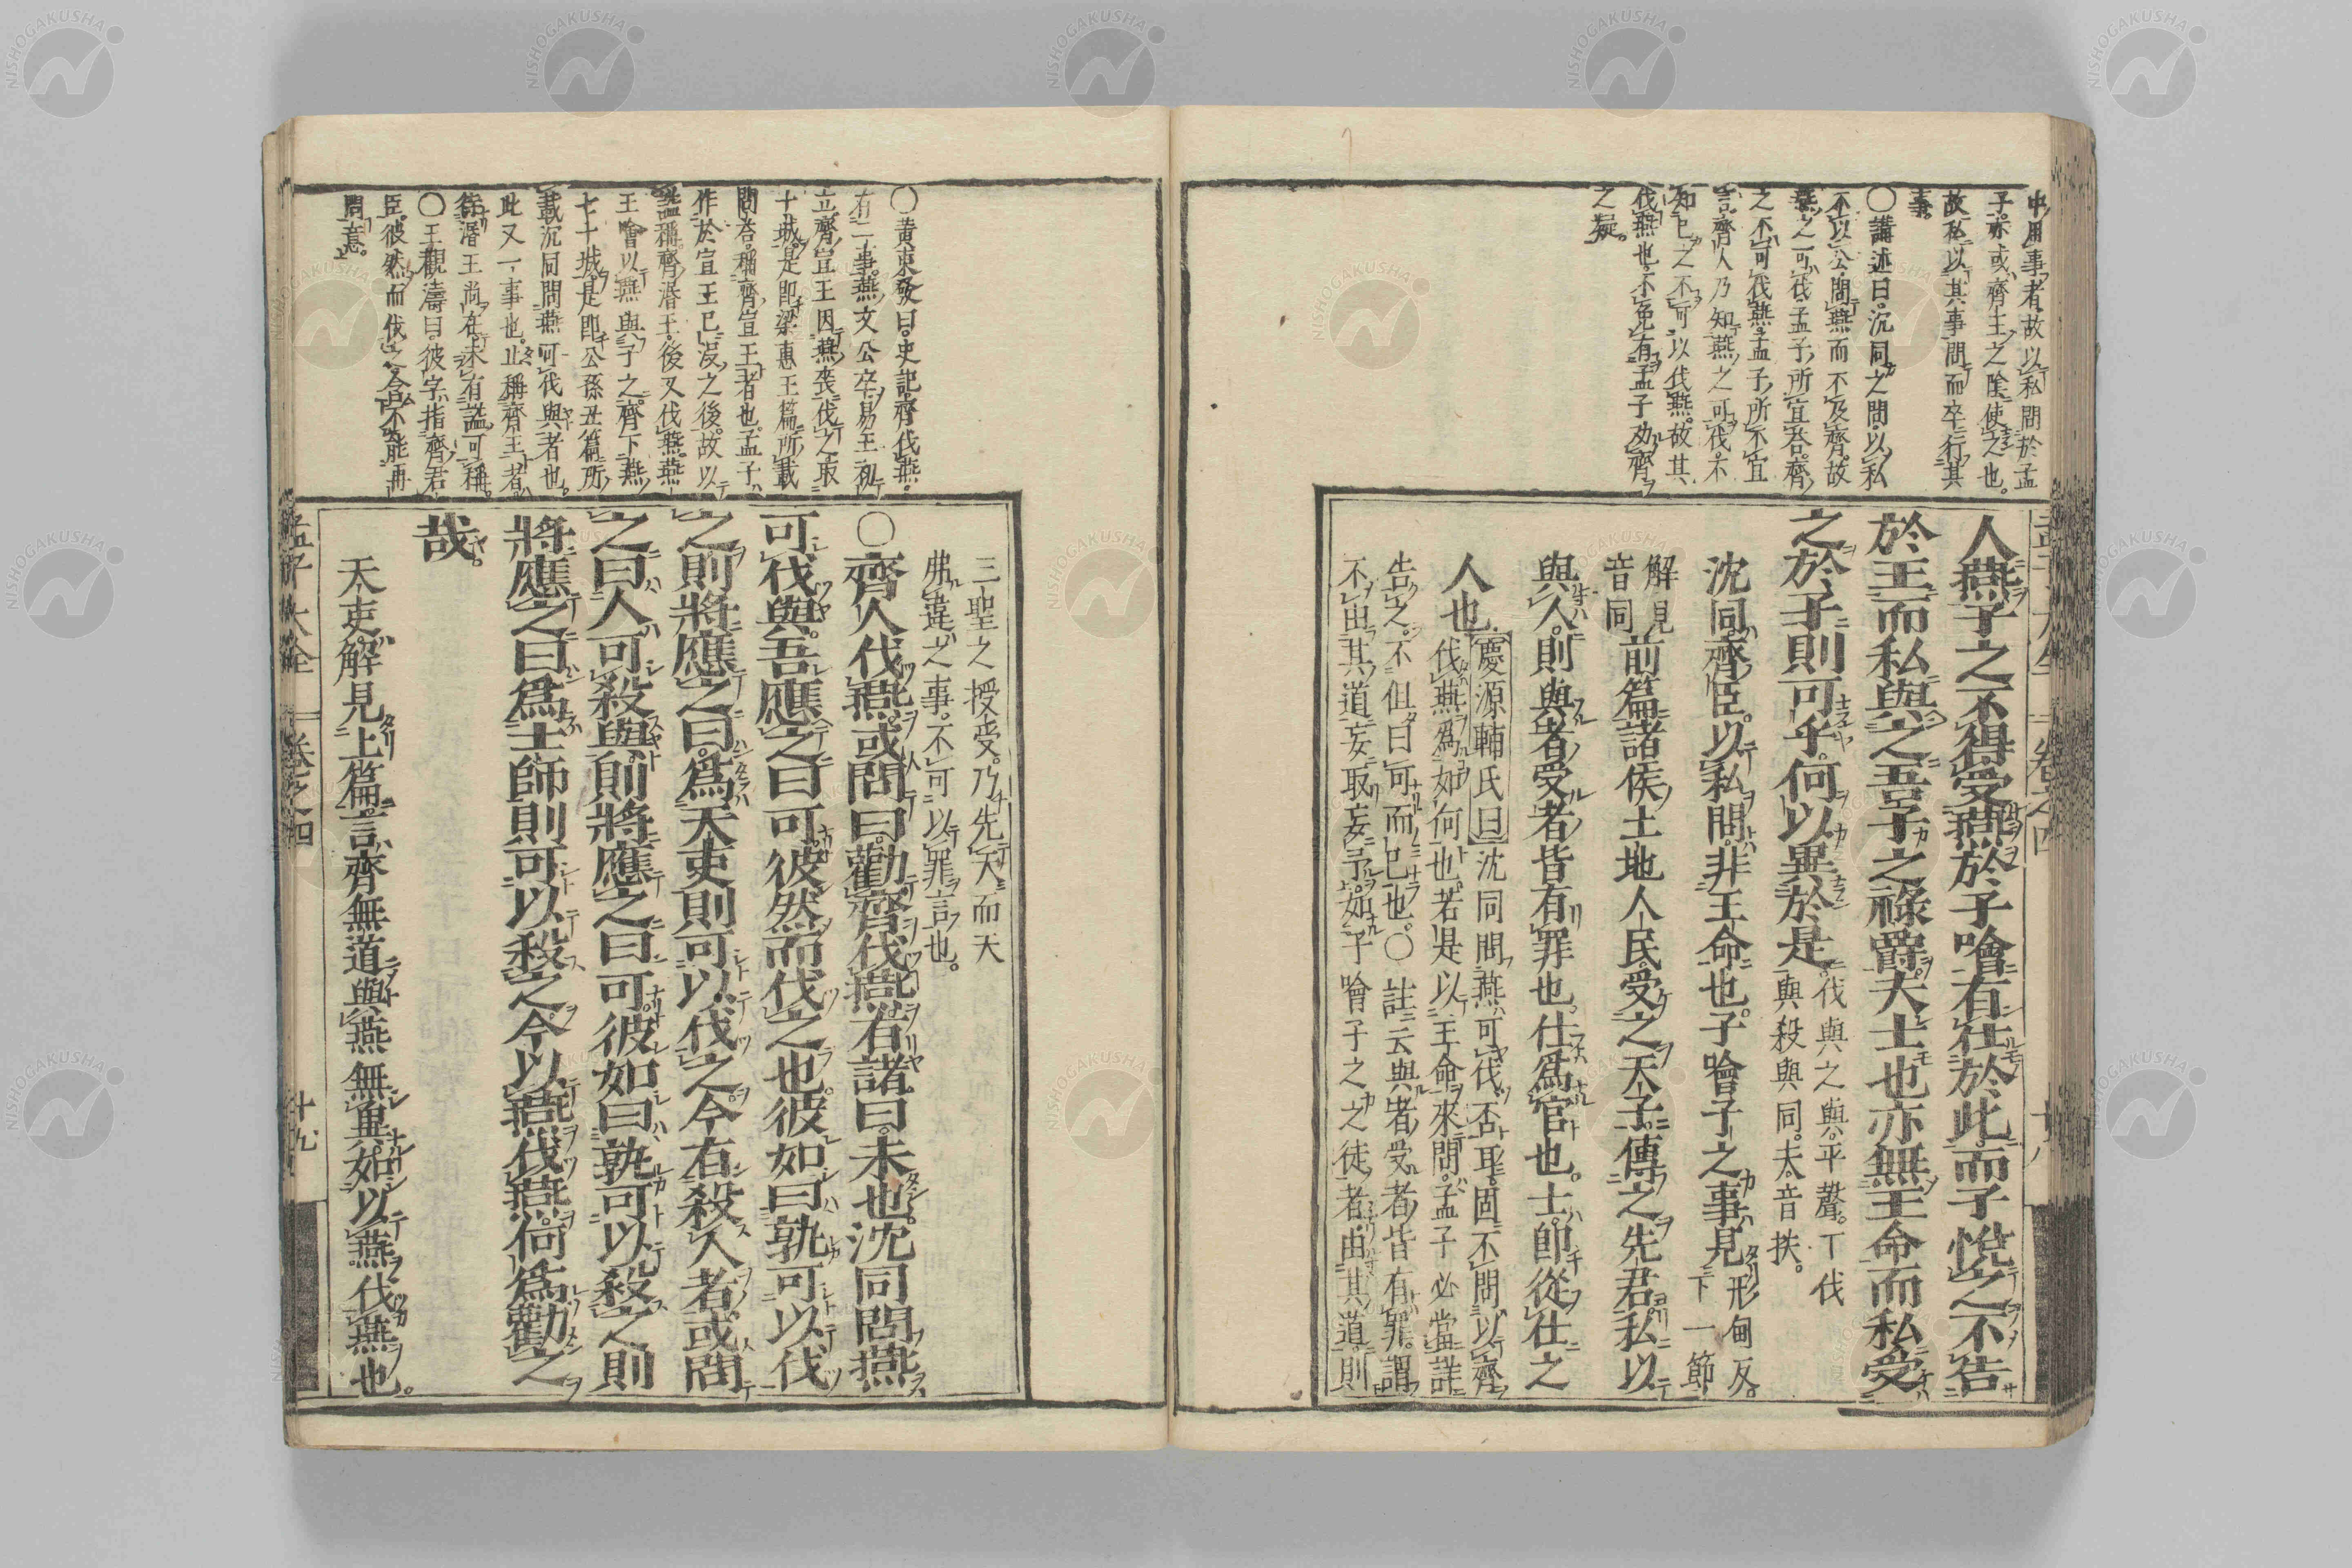 中用事者故以私問於孟
子亦或齊王之陰使之也
故私以其事問而卒行其
事
〇講述曰沉同之問以私
不以公問燕而不及齊故
燕之可伐孟子所宜答齊
之不可伐燕孟子所不宜
言齊人乃知燕之可伐不
知已之不可以伐燕故其
伐燕也不免有孟子劝齊
之疑
人燕子之不得受燕於子噲有仕於此而子悅之不告
於王而私與之吾子之祿爵夫士也亦無王命而私受
之於子則可乎何以異於是伐與之與平聲下伐
與殺與同夫音扶
沈同齊臣以私問非王命也子噲子之事見形甸反
下一節
解見
音同前篇諸侯土地人民受之天子傳之先君私以
與人則與者受者皆有罪也仕爲官也士卽從仕之
人也慶源輔氏曰沈同問燕可伐否耳固不問以齊
伐燕爲如何也若是以王命來問孟子必當詳
告之不但曰可而已也〇註云與者受者皆有罪謂
不由其道妄取妄予如子噲子之之徒者由其道則
〇黄東發曰史記齊伐燕
有二事燕文公卒易王初
立齊宣王因燕喪伐之取
十城是即梁惠王篇所載
問答稱齊宣王者也孟子
作於宣王已没之後故以
謚稱齊湣王後又伐燕燕
王噲以燕與子之齊下燕
七十城是即公孫丑篇所
載沉同問燕可伐與者也
此又一事也止稱齊王者
徐湣王尚在未有謚可稱
〇王觀濤曰彼字指齊君
臣彼然而伐之含不能再
問意
三聖之授受乃先天而天
弗違之事不可以罪言也
〇齊人伐燕或問曰勸齊伐燕有諸曰未也沈同問燕
可伐與吾應之曰可彼然而伐之也彼如曰孰可以伐
之則將應之曰爲天吏則可以伐之今有殺人者或問
之曰人可殺與則將應之曰可彼如曰孰可以殺之則
將應之曰爲士師則可以殺之今以燕伐燕何爲勸之
哉
天吏解見上篇言齊無道與燕無異如以燕伐燕也
孟子大全 卷之四 十九